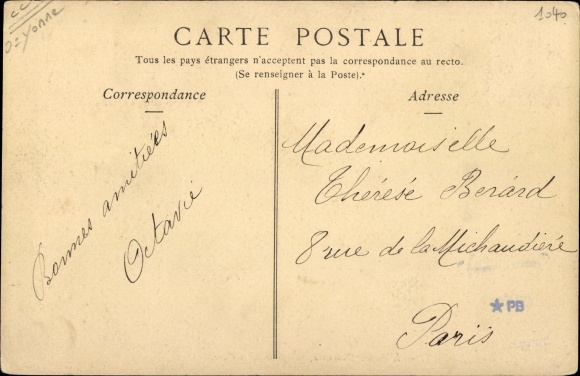 D=Yonne
1040
CARTE POSTALE
Tous les pays étrangers n'acceptent pas la correspondance au recto.
(Se renseigner à la Poste).
Correspondance
Adresse
Bonnes amitiées
Octavie
Mademoiselle
Thérèse Berard
8 rue de la Michaudiére
Paris
★PB